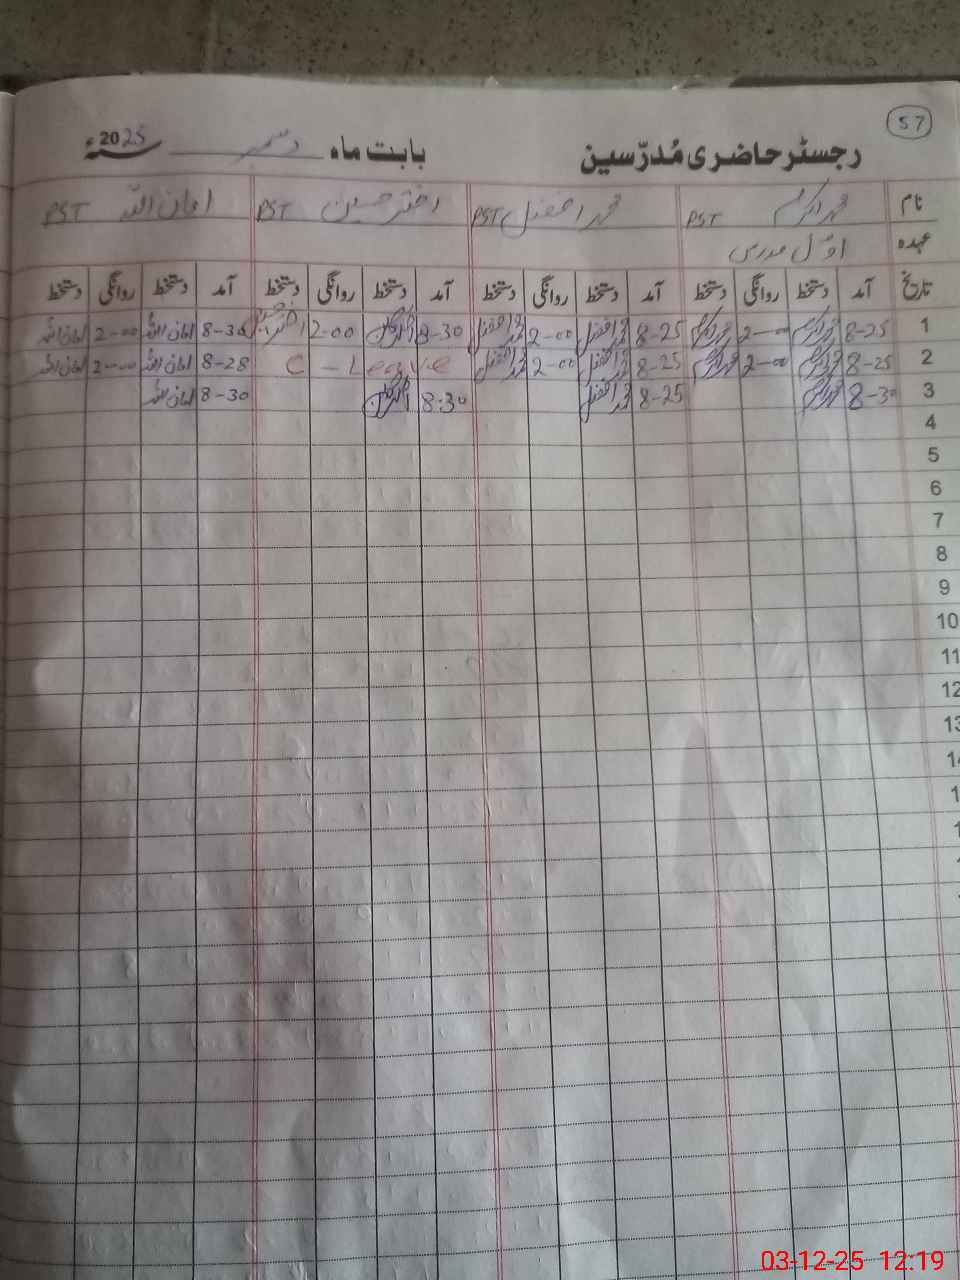 57
رجسٹر حاضری مُدرّسین بابت ماہ دسمبر 2025ء
نام محمد اکرم PST محمد افضل PST اختر حسین PST امان اللہ PST
عہدہ اوّل مدرس
تاریخ آمد دستخط روانگی دستخط آمد دستخط روانگی دستخط آمد دستخط روانگی دستخط آمد دستخط روانگی دستخط
1 8-25 محمد اکرم 2-00 محمد اکرم 8-25 محمد افضل 2-00 محمد افضل 8-30 2-00 اختر حسین 8-30 امان اللہ 2-00 امان اللہ
2 8-25 محمد اکرم 2-00 محمد اکرم 8-25 محمد افضل 2-00 محمد افضل C - Leave 8-28 امان اللہ 2-00 امان اللہ
3 8-30 محمد اکرم 8-25 محمد افضل 8.30 8-30 امان اللہ
4
5
6
7
8
9
10
11
12
13
03-12-25 12:19